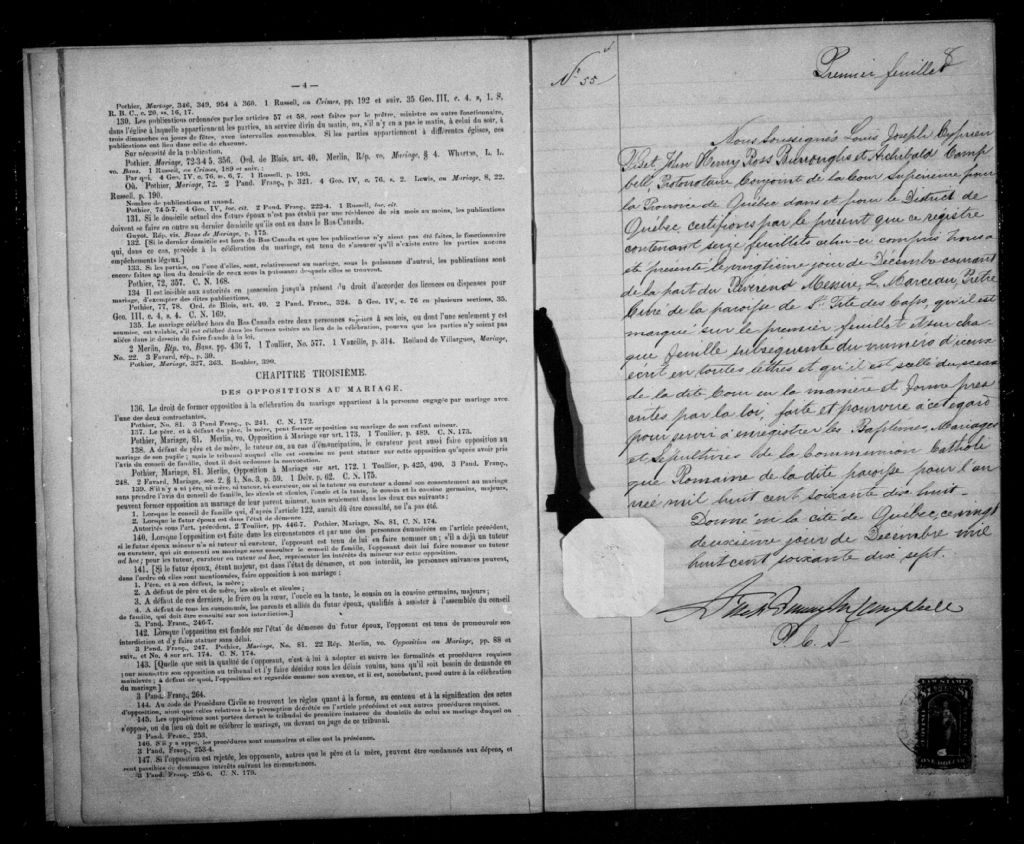 — 4 —
Pothier, Mariage, 346, 349, 954 à 360. 1 Russell, on Crimes, pp. 192 et suiv. 35 Geo. III, c. 4. s, 1. S.
R. B. C., c. 20, ss. 16, 17.
130. Les publications ordonnées par les articles 57 et 58, sont faites par le prêtre, ministre ou autre fonctionnaire,
dans l'église à laquelle appartiennent les parties, au service divin du matin, ou, s'il n'y en a pas le matin, à celui du soir, à
trois dimanches ou jours de fêtes, avec intervalles convenables. Si les parties appartiennent à différentes églises, ces
publications ont lieu dans celle de chacune.
Sur nécessité de la publication.
Pothier, Mariage, 72-3 4 5. 356. Ord. de Blois, art. 40. Merlin, Rép. vo. Mariage, § 4. Wharton, L. L.
vo. Bans. 1 Russell, on Crimes, 189 et suiv.
Par qui. 4 Geo. IV, c. 76, s. 6, 7. 1 Russell, p. 193.
Où. Pothier, Mariage, 72. 2 Pand. Franç., p 321. 4 Geo. IV, c. 76, s. 2. Lewis, on Mariage, 8, 22.
Russell, p. 190.
Nombre de publications et quand.
Pothier, 74-5-7. 4 Geo. IV, loc. cit. 2 Pand. Franç. 222-4. 1 Russell, loc. cit.
131. Si le domicile actuel des futurs époux n'est pas établi par une résidence de six mois au moins, les publications
doivent se faire en outre au dernier domicile qu'ils ont eu dans le Bas Canada.
Guyot, Rép. vis. Bans de Mariage, p. 175.
132. [Si le dernier domicile est hors du Bas Canada et que les publications n'y aient pas été faites, le fonctionnaire
qui, dans ce cas, procède à la célébration du mariage, est tenu de s'assurer qu'il n'existe entre les parties aucuns
empêchements légaux.]
133. Si les parties, ou l'une d'elles, sont, relativement au mariage, sous la puissance d'autrui, les publications sont
encore faites au lieu du domicile de ceux sous la puissance desquels elles se trouvent.
Pothier, 72, 357. C. N. 168.
134 Il est loisible aux autorités en possession jusqu'à présent du droit d'accorder des licences ou dispenses pour
mariage, d'exempter des dites publications.
Pothier, 77, 78. Ord. de Blois, art. 40. 2 Pand. Franc., 324. 5 Geo. IV, c. 76 en plusieurs sections, 35.
Geo. III, c. 4, s. 4. C. N. 169.
135. Le mariage célébré hors du Bas Canada entre deux personnes sujettes à ses lois, ou dont l'une seulement y est
soumise, est valable, s'il est célébré dans les formes usitées au lieu de la célébration, pourvu que les parties n'y soient pas
allées dans le dessein de faire fraude à la loi.
2 Merlin, Rép. vo. Bans, pp. 436 7. 1 Toullier, No. 577. 1 Vazeille, p. 314. Rolland de Villargues, Mariage,
No. 22. 3 Favard, rép., p. 39.
Pothier, Mariage, 327, 363. Bouhier, 390.
CHAPITRE TROISIÈME.
DES OPPOSITIONS AU MARIAGE.
136. Le droit de former opposition à la célébration du mariage appartient à la personne engagée par mariage avec
l'une des deux contractantes.
Pothier, No. 81. 3 Pand Franç., p. 241. C. N. 172.
137. Le père, et à défaut du père, la mère, peut former opposition au mariage de son enfant mineur.
Pothier, Mariage, 81. Merlin, vo. Opposition à Mariage sur art. 173. 1 Toullier, p. 489. C. N. 173.
138. A défaut de père et de mère, le tuteur ou, au cas d'émancipation, le curateur peut aussi faire opposition au
mariage de son pupille ; mais le tribunal auquel elle est soumise ne peut statuer sur cette opposition qu'après avoir pris
l'avis du conseil de famille, dont il doit ordonner la convocation.
Pothier, Mariage, 81. Merlin, Opposition à Mariage sur art. 172. 1 Toullier, p. 425, 490. 3 Pand. Franç.,
248. 2 Favard, Mariage, sec. 2. § 1, No. 3, p. 59. 1 Delv. p. 62. C. N. 175.
139. S'il n'y a ni père, ni mère, ni tuteur, ni curateur, ou si le tuteur ou curateur a donné son consentement au mariage
sans prendre l'avis du conseil de famille, les aïeuls et aïeules, l'oncle et la tante, le cousin et la cousine germains, majeurs,
peuvent former opposition au mariage de leur parent mineur, mais seulement dans les deux cas suivants ;
1. Lorsque le conseil de famille qui, d'après l'article 122, aurait dû être consulté, ne l'a pas été.
2. Lorsque le futur époux est dans l'état de démence.
Autorités sous l'art. précédent. 2 Toullier, pp. 446-7. Pothier, Mariage, No. 81, C. N. 174.
140. Lorsque l'opposition est faite dans les circonstances et par une des personnes énumérées en l'article précédent,
si le futur époux mineur n'a ni tuteur ni curateur, l'opposant est tenu de lui en faire nommer un ; s'il a déjà un tuteur
ou curateur, qui ait consenti au mariage sans consulter le conseil de famille, l'opposant doit lui faire nommer un tuteur
ad hoc ; pour les tuteur, curateur ou tuteur ad hoc, représenter les intérêts du mineur sur cette opposition.
141. [Si le futur époux, étant majeur, est dans l'état de démence, et non interdit, les personnes suivantes peuvent,
dans l'ordre où elles sont mentionnées, faire opposition à son mariage :
1. Père, et à son défaut, la mère ;
2. A défaut de père et de mère, les aïeuls et aïeules ;
3. A défaut de ces derniers, le frère ou la sœur, l'oncle ou la tante, le cousin ou la cousine germains, majeurs ;
4. A défaut de tous les susnommés, les parents et alliés du futur époux, qualifiés à assister à l'assemblée du conseil
de famille, qui doit être consulté sur son interdiction.]
3. Pand. Franç., 246-7.
142. Lorsque l'opposition est fondée sur l'état de démence du futur époux, l'opposant est tenu de promouvoir son
interdiction et d'y faire statuer sans délai.
3 Pand. Franç., 247. Pothier, Mariage, No. 81. 22 Rép. Merlin, vo. Opposition au Mariage, pp. 88 et
suiv., et No. 4 sur art. 174. C. N. 174.
143. [Quelle que soit la qualité de l'opposant, c'est à lui à adopter et suivre les formalités et procédures requises
pour soumettre son opposition au tribunal et l'y faire décider sous les délais voulus, sans qu'il soit besoin de demande en
mainlevée ; à défaut de quoi, l'opposition est regardée comme non avenue, et il est, nonobstant, passé outre à la célébration
du mariage.]
3 Pand. Franç., 264.
144. Au code de Procédure Civile se trouvent les règles quant à la forme, au contenu et à la signification des actes
d'opposition, ainsi que celles relatives à la péremption décrétée en l'article précédent et aux autres procédures requises.
145. Les oppositions sont portées devant le tribunal de première instance du domicile de celui au mariage duquel on
s'oppose, ou du lieu où doit se célébrer le mariage, ou devant un juge de ce tribunal.
3 Pand. Franç., 253.
146. S'il y a appel, les procédures sont sommaires et elles ont la préséance.
3 Pand. Franç., 253-4.
147. Si l'opposition est rejetée, les opposants, autres que le père et la mère, peuvent être condamnés aux dépens, et
sont passibles de dommages intérêts suivant les circonstances.
3 Pand. Franç. 255-6. C. N. 179.
No 55
Premier feuillet
8
Nous Soussignés Louis Joseph Cyprien
Fiset, John Henry Ross Burroughs et Archibald Camp
bell, Protonotaire Conjoint de la Cour Supérieure pour
la Province de Québec dans et pour le District de
Québec, certifions par le présent que ce registre
contenant seize feuillets celui-ci compris nous a
été présenté le vingtième jour de Décembre courant
de la part du Révérend Messire L. Marceau, Prêtre
Curé de la paroisse de St Tite des Caps, qu'il est
marqué sur le premier feuillet et sur cha-
que feuille subséquente du numéro d'iceux
écrit en toutes lettres et qu'il est scellé du sceau
de la dite Cour en la manière et forme pres
crites par la loi, faite et pourvue à cet égard
pour servir à enregistrer les Baptêmes, Mariages
et Sépultures de la Communion Catholi
que Romaine de la dite paroisse pour l'an
née mil huit cent soixante dix huit.
Donné en la cité de Québec, ce vingt
deuxième jour de Décembre mil
huit cent soixante dix sept.
Fiset Burroughs Campbell
P. C. S
LAW STAMP
ONE DOLLAR